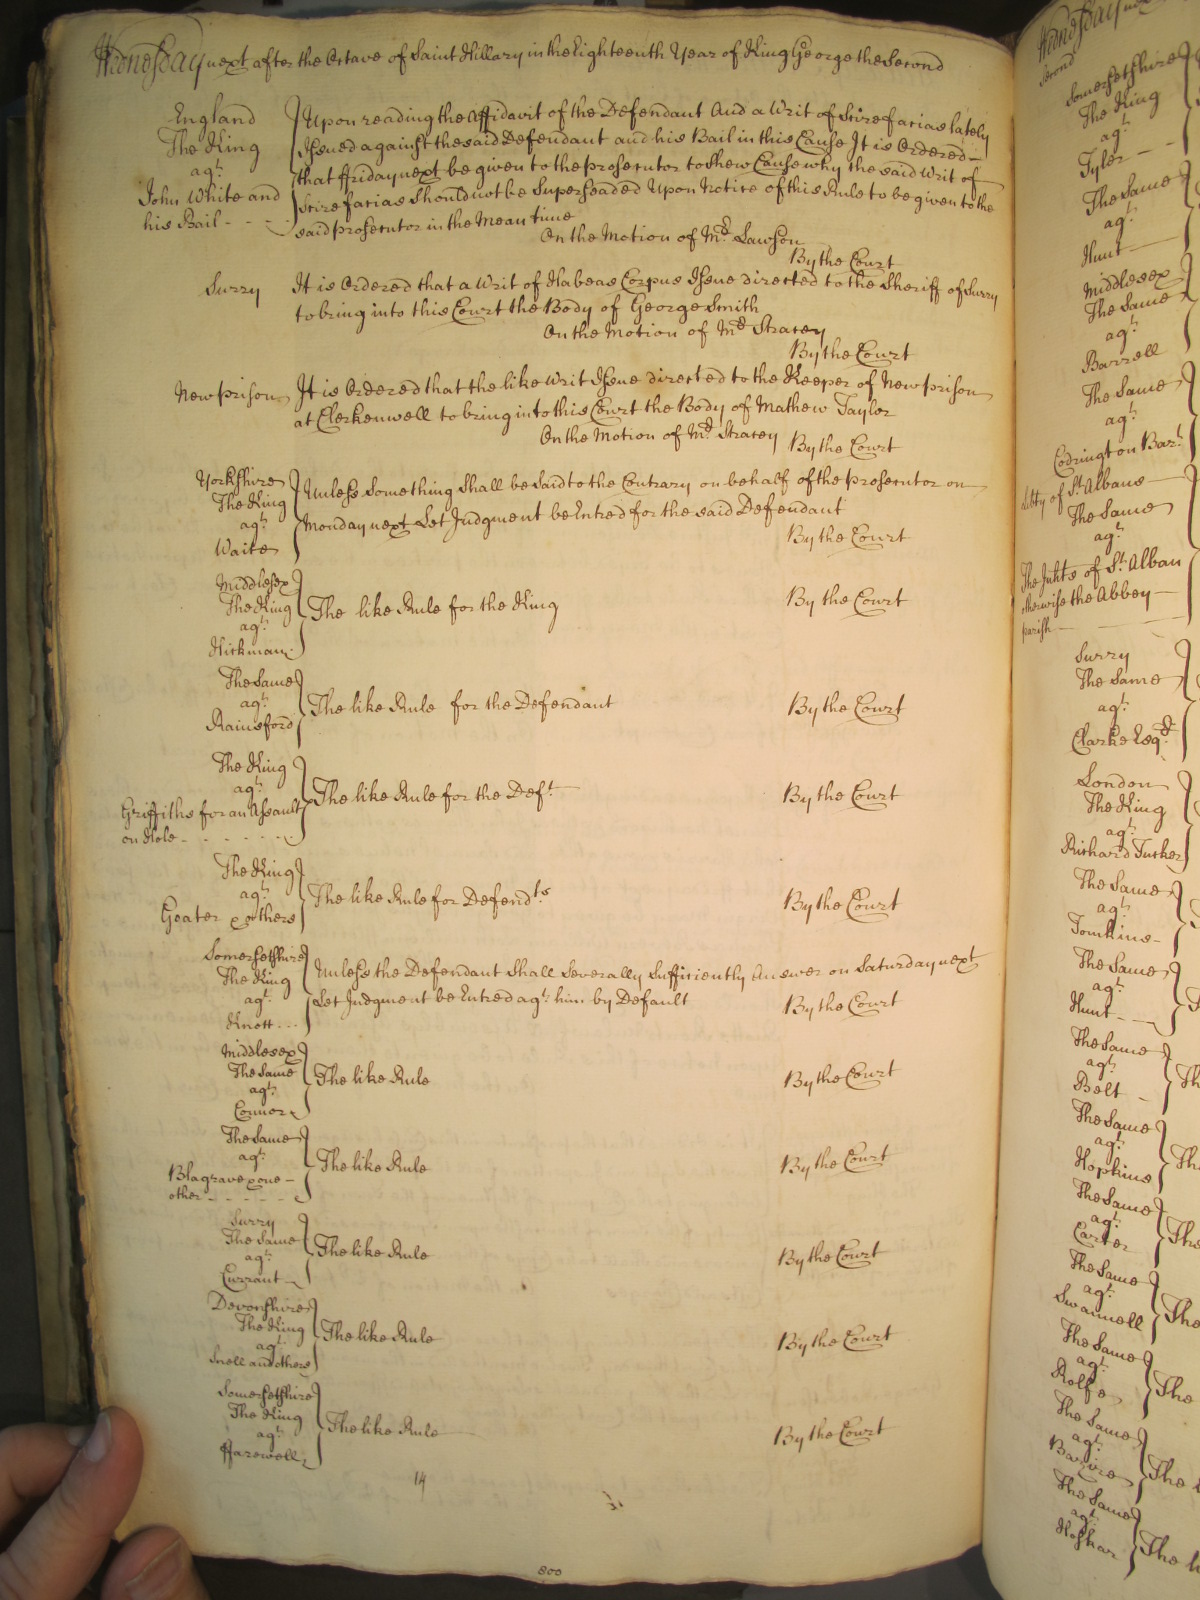 Wednesday next after the Octave of Saint Hillary in the Eighteenth Year of King George the Second
England
The King
agt.
John White and
his Bail - - - -
Upon reading the Affidavit of the Defendant And a Writ of Scire facias lately
Issued against the said Defendant and his Bail in this Cause It is Ordered
that ffriday next be given to the prosecutor to shew Cause why the said Writ of
Scire facias should not be Superseaded Upon Notice of this Rule to be given to the
said prosecutor in the Mean time
On the Motion of Mr. Lawson
By the Court
Surry
It is Ordered that a Writ of Habeas Corpus Issue directed to the Sheriff of Surry
to bring into this Court the Body of George Smith
On the Motion of Mr. Stracey
By the Court
New prison
It is Ordered that the like Writ Issue directed to the Keeper of New prison
at Clerkenwell to bring into this Court the Body of Mathew Taylor
On the Motion of Mr. Stracey
By the Court
Yorkshire
The King
agt.
Waite
Unless Something Shall be Said to the Contrary on behalf of the prosecutor on
Monday next Let Judgment be Entred for the said Defendant
By the Court
Middlesex
The King
agt.
Hickman
The like Rule for the King
By the Court
The Same
agt.
Rainsford
The like Rule for the Defendant
By the Court
The King
agt.
Griffiths for an Assault
on Hole - - - - - -
The like Rule for the Deft.
By the Court
The King
agt.
Goater & others
The like Rule for Defendts.
By the Court
Somersetshire
The King
agt.
Knott ...
Unless the Defendant Shall Severally Sufficiently Answer on Saturday next
Let Judgment be Entred agt. him by Default
By the Court
Middlesex
The Same
agt.
Connor
The like Rule
By the Court
The Same
agt.
Blagrave & one
other - - - - -
The like Rule
By the Court
Surry
The Same
agt.
Currant
The like Rule
By the Court
Devonshire
The King
agt.
Snell and others
The like Rule
By the Court
Somersetshire
The King
agt.
ffarewell
The like Rule
By the Court
14
800
Wednesday
Second
Somersetshire
The King
agt.
Tyler
The Same
agt.
Hunt
Middlesex
The Same
agt.
Barrell
The Same
agt.
Codrington Bart.
Libty of St. Albans
The Same
agt.
The Inhts of St. Alban
otherwise the Abbey
parish
Surry
The Same
agt.
Clarke Esqr.
London
The King
agt.
Richard Tucker
The Same
agt.
Tomkins
The Same
agt.
Hunt
The Same
agt.
Belt
Th
The Same
agt.
Hopkins
The
The Same
agt.
Carter
The
The Same
agt.
Swannell
The
The Same
agt.
Rolfe
The
The Same
agt.
The
The Same
agt.
The